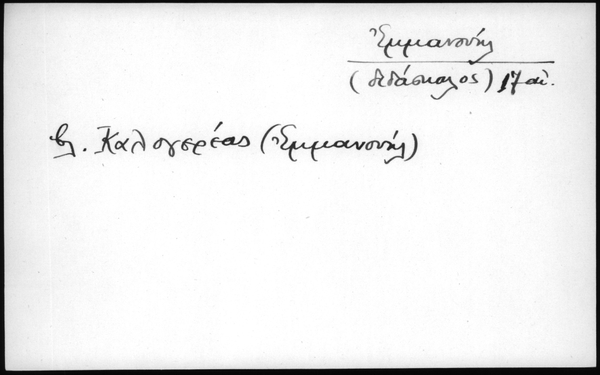 Ἐμμανουήλ
(διδάσκαλος) 17 αἰ.
βλ. Καλογερέας (Ἐμμανουήλ)